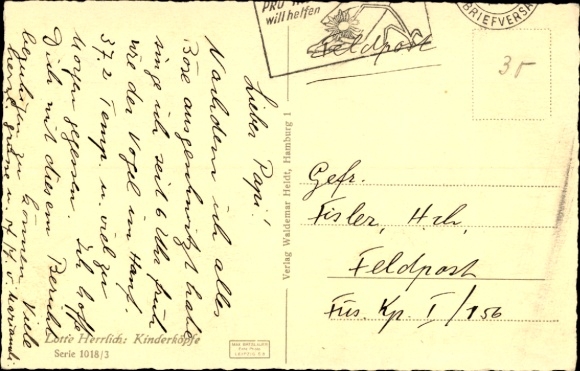 Lieber Papi!
Nachdem ich alles
Böse ausgeschwitzt habe
singe ich seit 6 Uhr früh
wie der Vogel im Hanf
37 2 Temp. u. viel zu
Morgen gegessen. Ich hoffe
Dich mit diesem Bericht
zu können. Viele
Lotte Herrlich: Kinderköpfe
Serie 1018/3
Verlag Waldemar Heldt, Hamburg 1
PRO
will helfen
BRIEFVERS
Feldpost
35
Gefr.
Fisler, Hch.
Feldpost
Füs. Kp. I/156